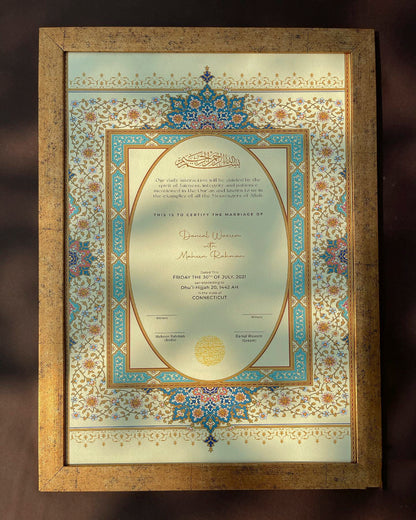 بسم الله الرحمن الرحيم
Our daily interactions will be guided by the
spirit of fairness, integrity and patience
mentioned in the Qur'an and known to us in
the examples of all the Messengers of Allah
THIS IS TO CERTIFY THE MARRIAGE OF
Danial Waseem
with
Maheen Rahman
Dated this
FRIDAY THE 30TH OF JULY, 2021
corresponding to
Dhu'l-Hijjah 20, 1442 AH
in the state of
CONNECTICUT
Witness
Witness
Maheen Rahman
(Bride)
Danial Waseem
(Groom)